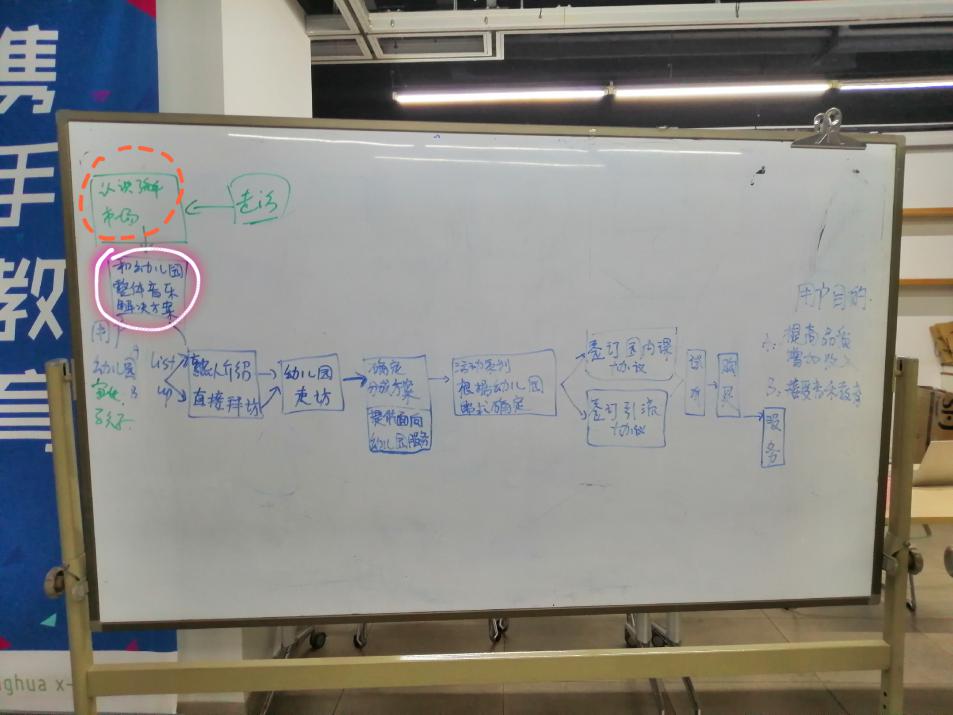 携手教育
认识了解
市场
走访
和幼儿园
整体音乐
解决方案
用户
幼儿园
家长
孩子
List
熟人介绍
直接拜访
幼儿园
走访
确定
分成方案
提供面向
幼儿园服务
活动类别
根据幼儿园
需求确定
签订园内课
协议
签订引流
协议
购买
服务
用户目的
1、提高品质
增加收入
3、接受音乐教育